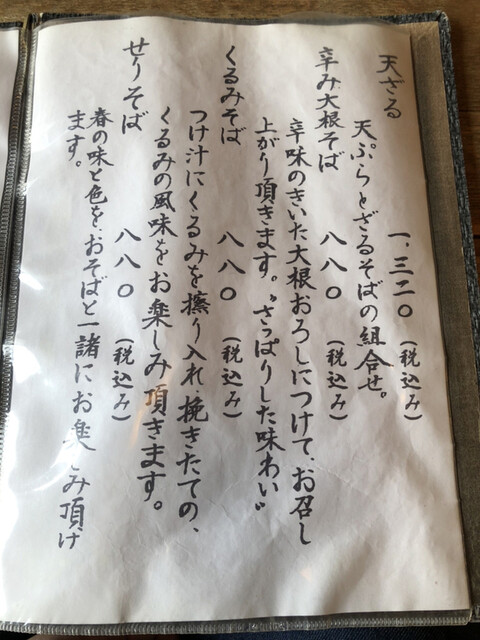 天ざる
一、三二〇（税込み）
天ぷらとざるそばの組合せ。
辛み大根そば
八八〇（税込み）
辛味のきいた大根おろしにつけて、お召し
上がり頂きます。“さっぱりした味わい”
くるみそば
八八〇（税込み）
つけ汁にくるみを擦り入れ、挽きたての、
くるみの風味をお楽しみ頂きます。
せりそば
八八〇（税込み）
春の味と色を、おそばと一諸にお楽しみ頂け
ます。